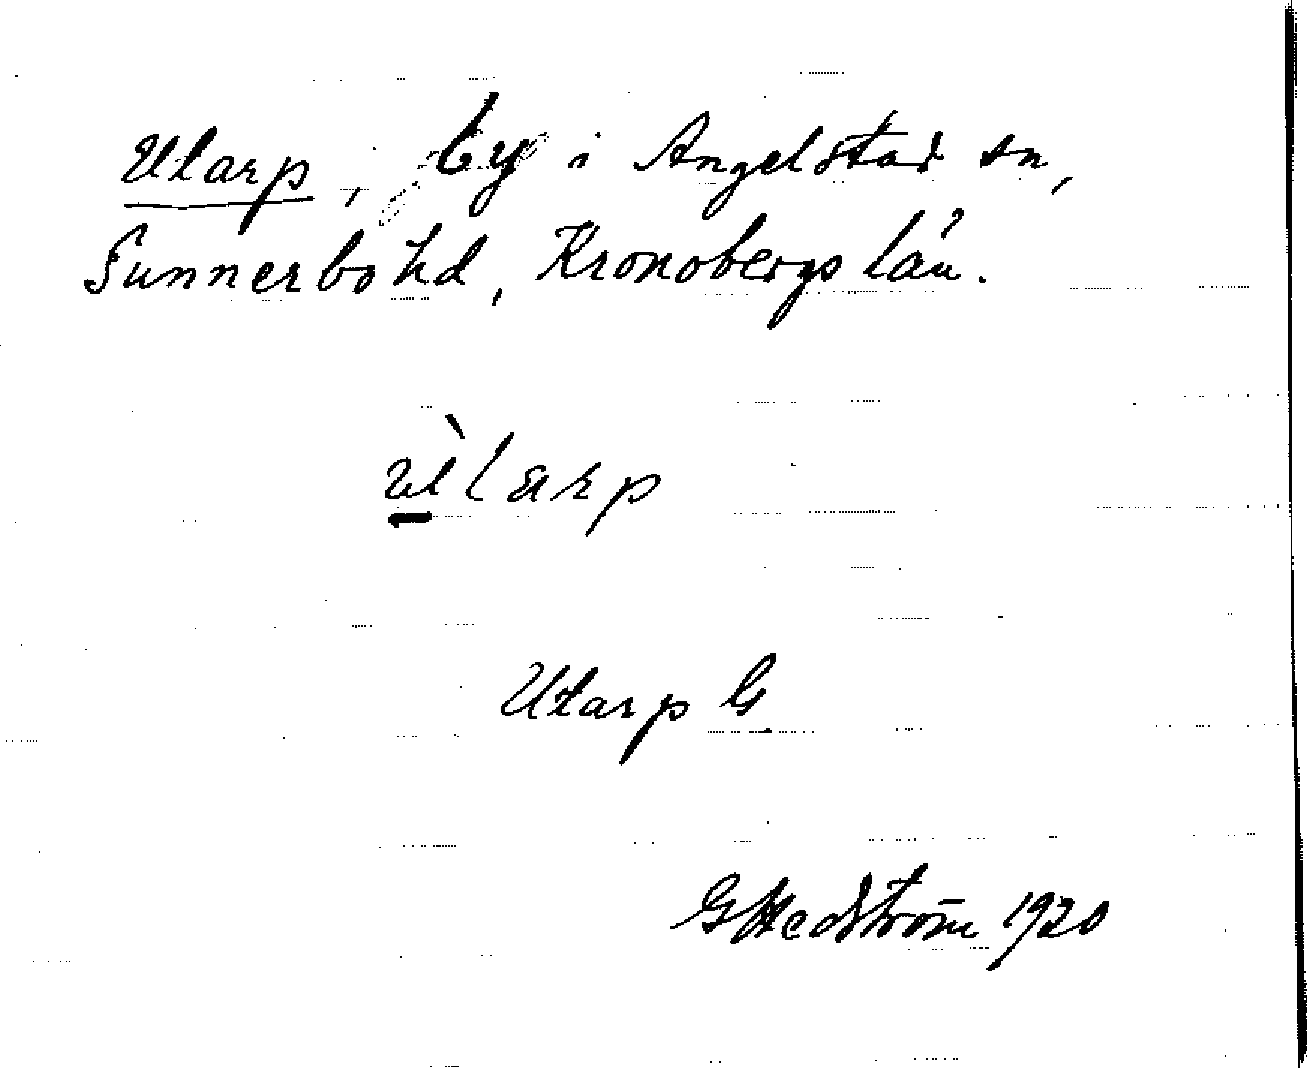 Utarp, by i Angelstad sn,
Sunnerbo hd, Kronobergs län.
ùtarp
Utarp G
GHedström 1920